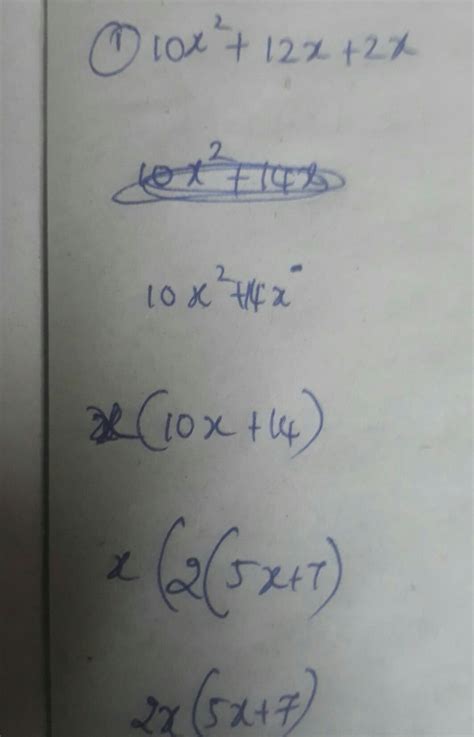 ① 10x² + 12x + 2x
10x² + 14x
10x² + 14x
x(10x + 14)
x(2(5x+7)
2x(5x+7)